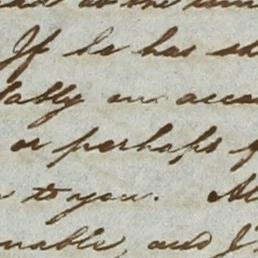 at the
If he has sh
ably on acco
or perhaps
to you. Al
nable, and I